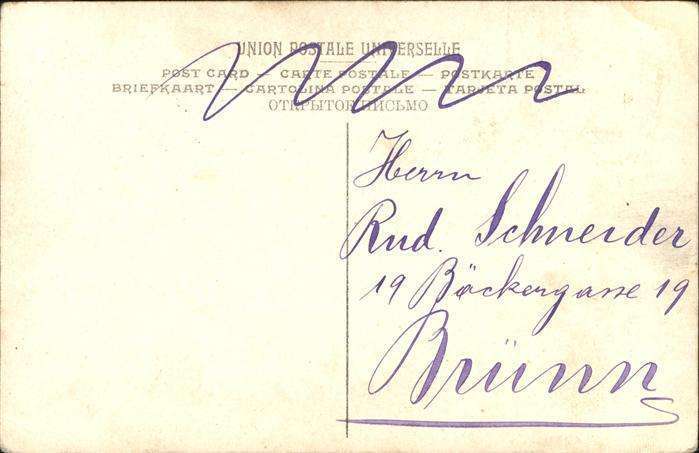 UNION POSTALE UNIVERSELLE
POST CARD — CARTE POSTALE — POSTKARTE
BRIEFKAART — CARTOLINA POSTALE — TARJETA POSTAL
ОТКРЫТОЕ ПИСЬМО
Herrn
Rud. Schneider
19 Bäckergasse 19
Brünn